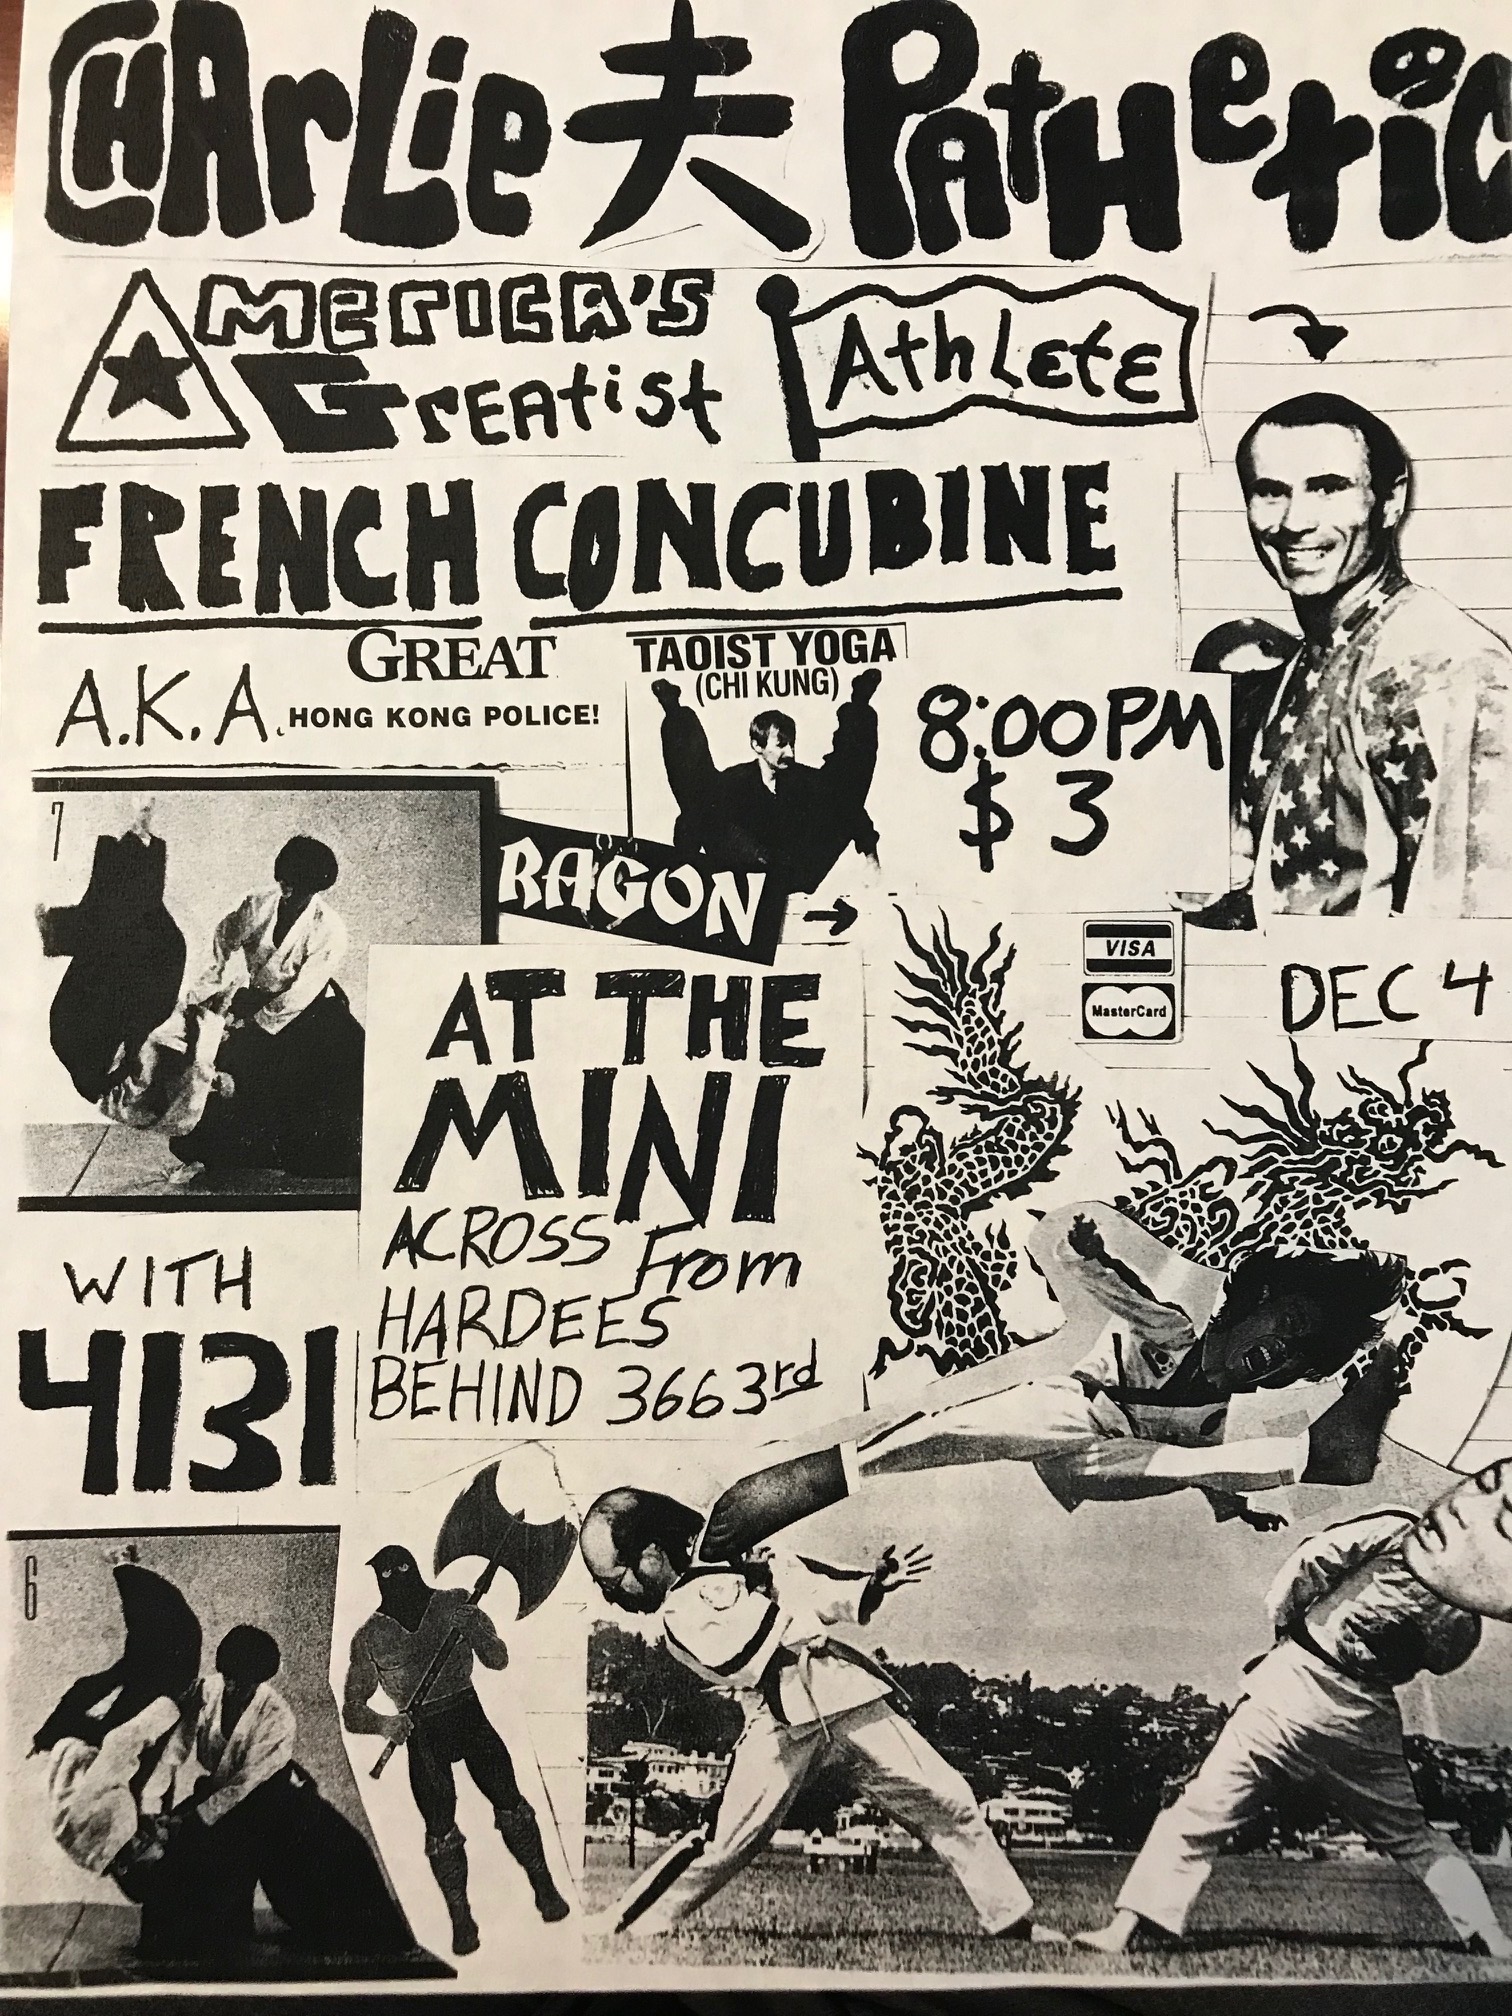 CHArLie 夫 PATHetiC
AMERICA'S
GrEAtist
AthLete
FRENCH CONCUBINE
A.K.A.
GREAT
HONG KONG POLICE!
TAOIST YOGA
(CHI KUNG)
8:00PM
$3
7
RAGON
VISA
MasterCard
DEC 4
AT THE
MINI
ACROSS From
HARDEES
BEHIND 366 3rd
WITH
4131
6